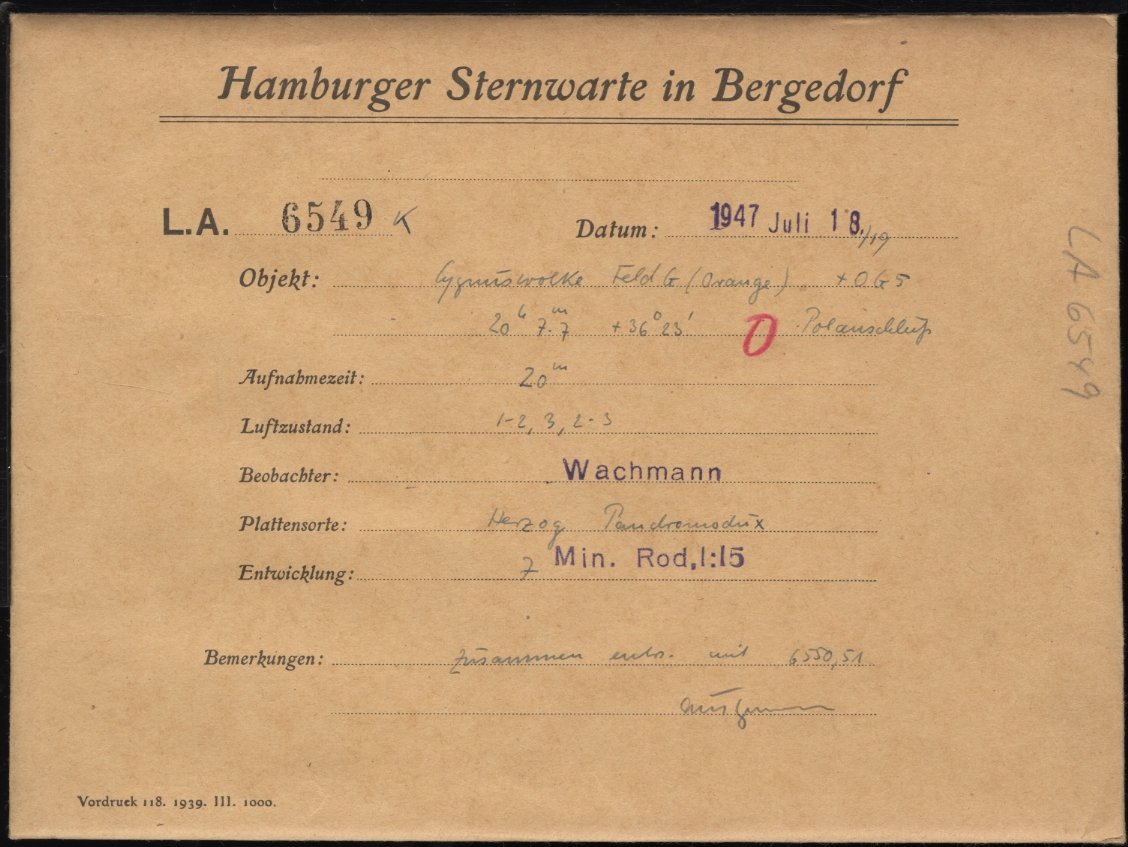 Hamburger Sternwarte in Bergedorf
L.A. 6549 K Datum: 1947 Juli 18./19
Objekt: Cygnuswolke Feld G (Orange) + OG5
20ʰ 7.ᵐ7 +36° 23' O Polanschluß
Aufnahmezeit: 20ᵐ
Luftzustand: 1-2, 3, 2-3
Beobachter: Wachmann
Plattensorte: Herzog Pandromodux
Entwicklung: 7 Min. Rod, 1:15
Bemerkungen: zusammen entw. mit 6550,51
Vordruck 118. 1939. III. 1000.
LA 6549